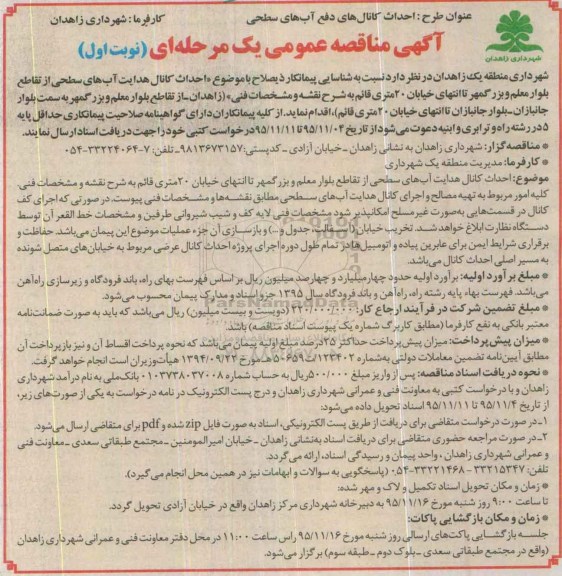 عنوان طرح : احداث کانال‌های دفع آب‌های سطحی
کارفرما: شهرداری زاهدان
آگهی مناقصه عمومی یک مرحله‌ای (نوبت اول)
شهرداری زاهدان
شهرداری منطقه یک زاهدان در نظر دارد نسبت به شناسایی پیمانکار ذیصلاح با موضوع «احداث کانال هدایت آب‌های سطحی از تقاطع
بلوار معلم و بزرگمهر تا انتهای خیابان ۲۰متری قائم به شرح نقشه و مشخصات فنی» (زاهدان ـ از تقاطع بلوار معلم و بزرگمهر به سمت بلوار
جانبازان ـ بلوار جانبازان تا انتهای خیابان ۲۰متری قائم)، اقدام نماید. از کلیه پیمانکاران دارای گواهینامه صلاحیت پیمانکاری حداقل پایه
۵ در رشته راه و ترابری و ابنیه دعوت می‌شود از تاریخ ۹۵/۱۱/۰۴ تا ۹۵/۱۱/۱۱ درخواست کتبی خود را جهت دریافت اسناد ارسال نمایند.
* مناقصه گزار: شهرداری زاهدان به نشانی زاهدان ـ خیابان آزادی ـ کدپستی: ۹۸۱۳۶۷۳۱۵۷ ـ تلفن: ۷-۳۳۲۲۴۰۶۴-۰۵۴
* کارفرما: مدیریت منطقه یک شهرداری
موضوع: احداث کانال هدایت آب‌های سطحی از تقاطع بلوار معلم و بزرگمهر تا انتهای خیابان ۲۰متری قائم به شرح نقشه و مشخصات فنی.
کلیه امور مربوط به تهیه مصالح و اجرای کانال هدایت آب‌های سطحی مطابق نقشه‌ها و مشخصات فنی پیوست. در صورتی که اجرای کف
کانال در قسمت‌هایی به‌صورت غیر مسلح امکانپذیر شود مشخصات فنی لایه کف و شیب شیروانی طرفین و مشخصات خط القعر آن توسط
دستگاه نظارت ابلاغ خواهد شد. تخریب خیابان (آسفالت، جدول و...) و بازسازی آن جزء عملیات موضوع این پیمان می‌باشد. حفاظت و
برقراری شرایط ایمن برای عابرین پیاده و اتومبیل‌ها در تمام طول دوره اجرای پروژه احداث کانال عرضی مربوط به خیابان‌های متصل شونده
به مسیر اصلی احداث کانال می‌باشد.
* مبلغ برآورد اولیه: برآورد اولیه حدود چهار میلیارد و چهارصد میلیون ریال بر اساس فهرست بهای راه، باند فرودگاه و زیرسازی راه‌آهن
می‌باشد. فهرست بهاء پایه رشته راه، راه‌آهن و باند فرودگاه سال ۱۳۹۵ جزء اسناد و مدارک پیمان محسوب می‌شود.
* مبلغ تضمین شرکت در فرآیند ارجاع کار: ۲۲۰/۰۰۰/۰۰۰ (دویست و بیست میلیون) ریال می‌باشد که باید به صورت ضمانت‌نامه
معتبر بانکی به نفع کارفرما (مطابق کاربرگ شماره یک پیوست اسناد مناقصه) باشد.
* میزان پیش پرداخت: میزان پیش‌پرداخت حداکثر ۲۵درصد مبلغ اولیه پیمان می‌باشد که نحوه پرداخت اقساط آن و نیز بازپرداخت آن
مطابق آیین‌نامه تضمین معاملات دولتی به‌شماره ۱۲۳۴۰۲/ت۵۰۶۵۹هـ مورخ ۱۳۹۴/۰۹/۲۲ هیأت‌وزیران است انجام خواهد گرفت.
* نحوه دریافت اسناد مناقصه: پس از واریز مبلغ ۵۰۰/۰۰۰ریال به حساب شماره ۰۱۰۳۷۳۸۰۳۷۰۰۸ بانک‌ملی به نام درآمد شهرداری
زاهدان و با درخواست کتبی به معاونت فنی و عمرانی شهرداری زاهدان و درج پست الکترونیک در نامه درخواست به یکی از صورت‌های زیر،
از تاریخ ۹۵/۱۱/۴ تا ۹۵/۱۱/۱۱ اسناد تحویل داده می‌شود:
۱ـ در صورت درخواست متقاضی برای دریافت از طریق پست الکترونیکی، اسناد به صورت فایل zip شده و pdf برای متقاضی ارسال می‌شود.
۲ـ در صورت مراجعه حضوری متقاضی برای دریافت اسناد به‌نشانی زاهدان ـ خیابان امیرالمومنین ـ مجتمع طبقاتی سعدی ـ معاونت فنی
و عمرانی شهرداری زاهدان ، واحد پیمان و رسیدگی اسناد، ارائه می‌گردد.
تلفن: ۳۳۲۱۵۳۴۷ - ۳۳۲۲۱۴۶۸-۰۵۴ (پاسخگویی به سوالات و ابهامات نیز در همین محل انجام می‌گیرد).
* زمان و مکان تحویل اسناد تکمیل و لاک و مهر شده:
تا ساعت ۹:۰۰ روز شنبه مورخ ۹۵/۱۱/۱۶ به دبیرخانه شهرداری مرکز زاهدان واقع در خیابان آزادی تحویل گردد.
* زمان و مکان بازگشایی پاکات:
جلسه بازگشایی پاکت‌های ارسالی روز شنبه مورخ ۹۵/۱۱/۱۶ راس ساعت ۱۱:۰۰ در محل دفتر معاونت فنی و عمرانی شهرداری زاهدان
(واقع در مجتمع طبقاتی سعدی ـ بلوک دوم ـ طبقه سوم) برگزار می‌شود.